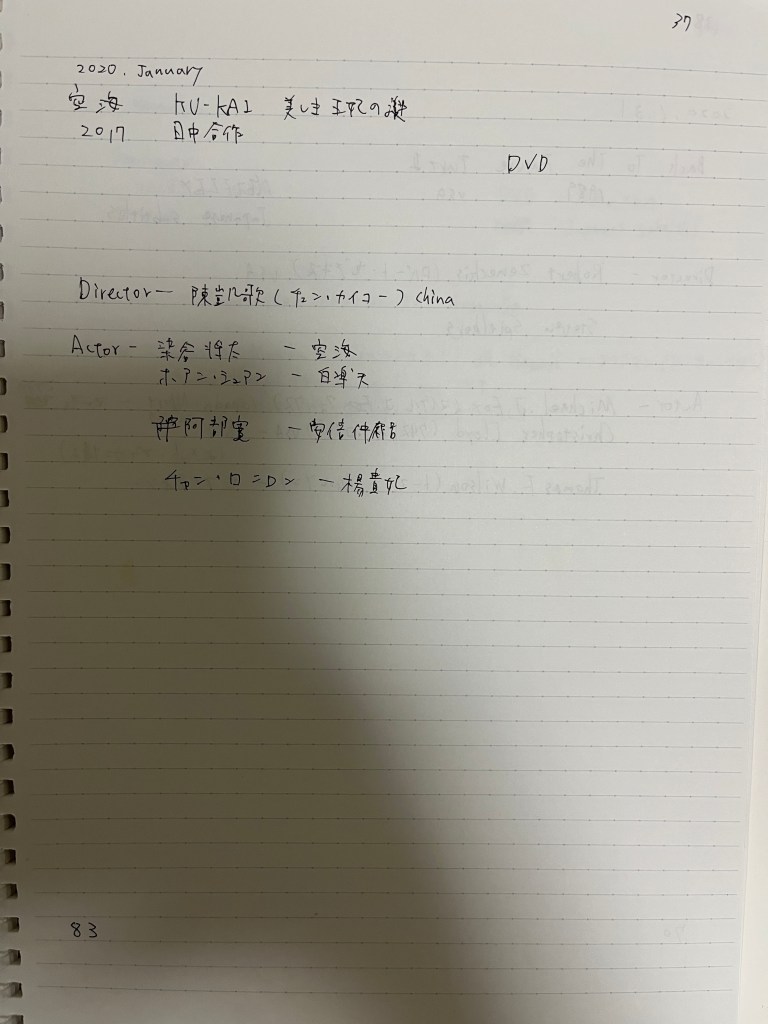 37
2020. January
空海 KU-KAI 美しき王妃の謎
2017 日中合作
DVD
Director ー 陳凱歌 (チェン・カイコー) China
Actor ー 染谷将太 ー 空海
ホアン・シュアン ー 白楽天
阿部寛 ー 安倍仲麻呂
チャン・ロンロン ー 楊貴妃
83